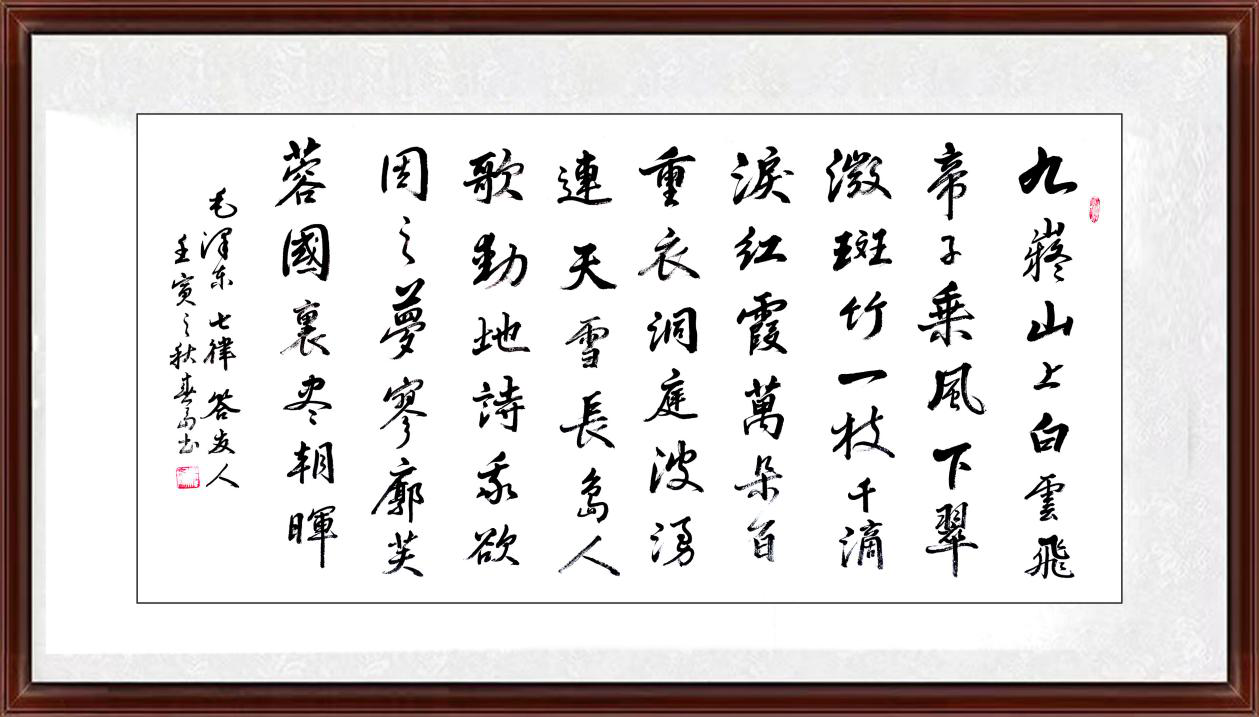 九嶷山上白雲飛
帝子乘風下翠
微斑竹一枝千滴
淚红霞萬朵百
重衣洞庭波湧
連天雪長島人
歌動地詩我欲
因之夢寥廓芙
蓉國裏尽朝暉
毛澤东七律答友人
壬寅之秋春书